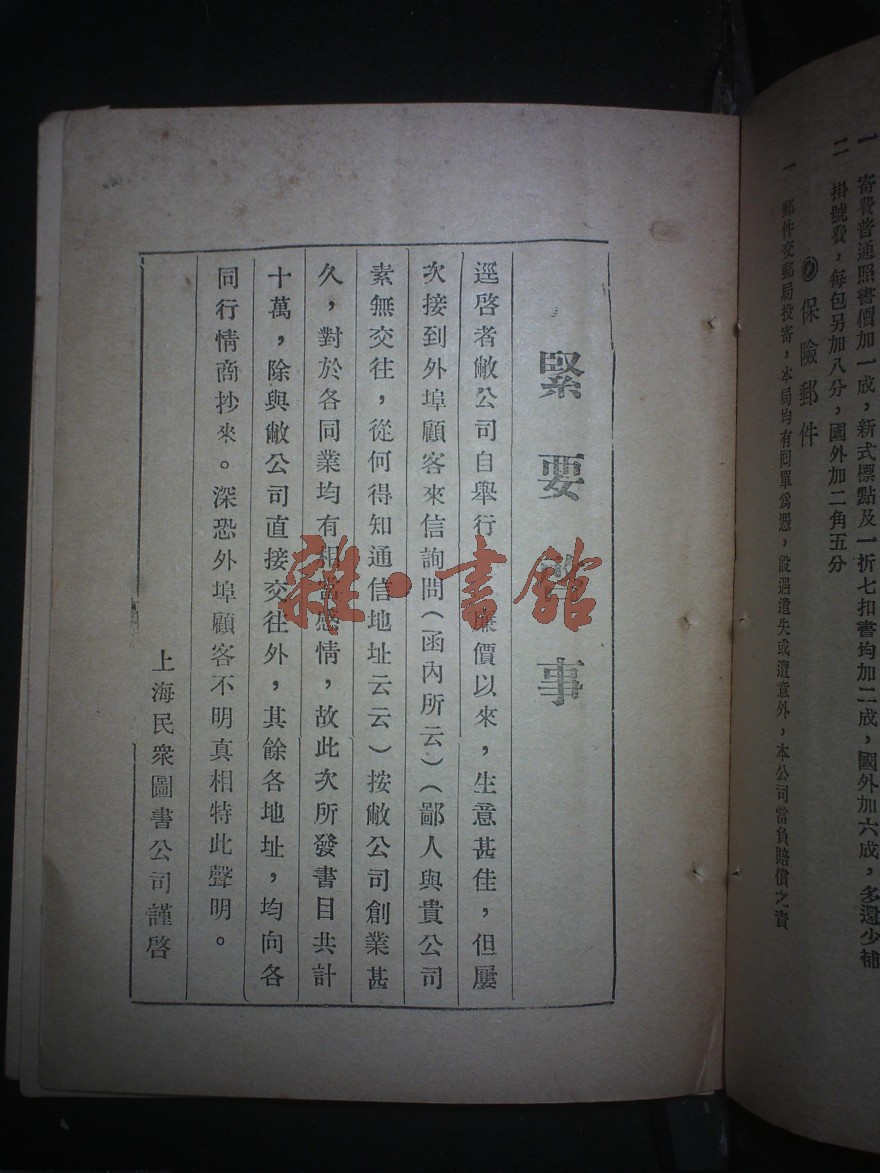 一 寄費普通照書價加一成，新式標點及一折七扣書均加二成，國外加六成，多還少補
二 掛號費，每包另加八分，國外加二角五分
◎保險郵件
一 郵件交郵局投寄，本局均有回單爲憑，設遇遺失或遭意外，本公司當負賠償之責
緊要 事
逕啓者敝公司自舉行 廉價以來，生意甚佳，但屢
次接到外埠顧客來信詢問（函內所云）（鄙人與貴公司
素無交往，從何得知通信地址云云）按敝公司創業甚
久，對於各同業均有相當感情，故此次所發書目共計
十萬，除與敝公司直接交往外，其餘各地址，均向各
同行情商抄來。深恐外埠顧客不明真相特此聲明。
上海民衆圖書公司謹啓
雜·書館